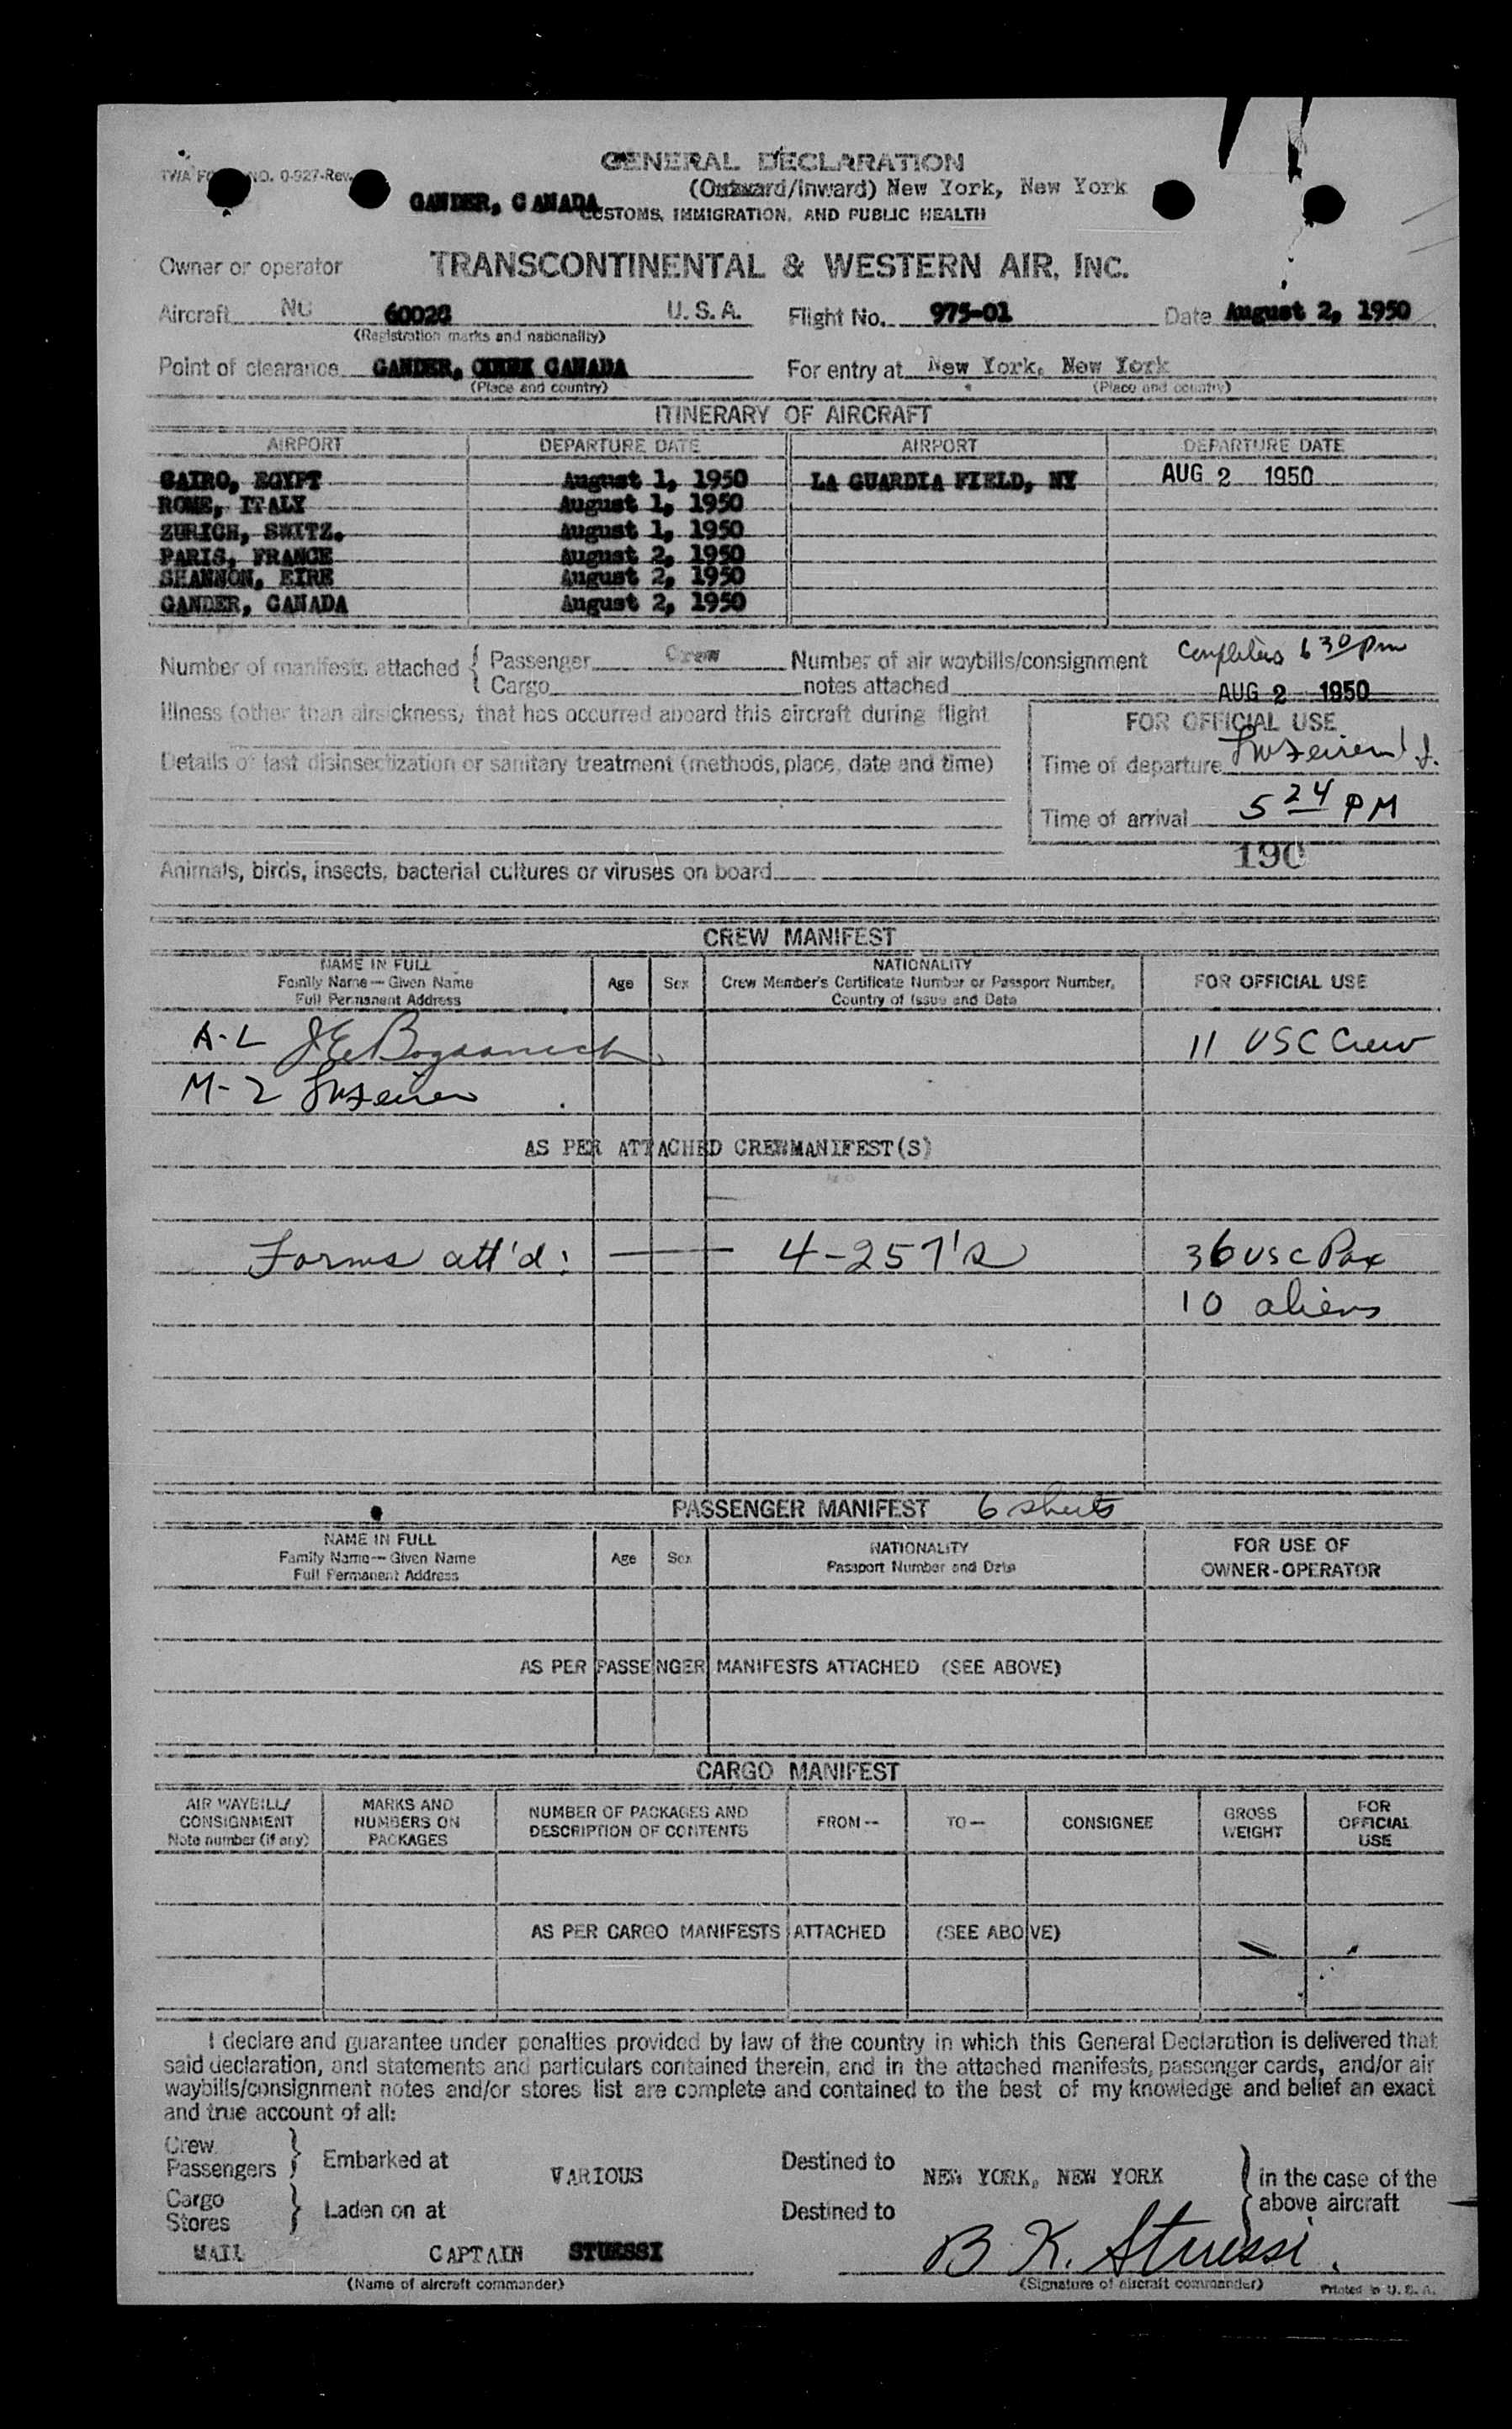 GENERAL DECLARATION
TWA NO. 0-927-Rev.
(Outward/Inward) New York, New York
GANDER, CANADA
CUSTOMS, IMMIGRATION, AND PUBLIC HEALTH
Owner or operator TRANSCONTINENTAL & WESTERN AIR, INC.
Aircraft NC 6002G U. S. A. Flight No. 975-01 Date August 2, 1950
(Registration marks and nationality)
Point of clearance GANDER, CANADA For entry at New York, New York
(Place and country) (Place and country)
ITINERARY OF AIRCRAFT
AIRPORT DEPARTURE DATE AIRPORT DEPARTURE DATE
CAIRO, EGYPT August 1, 1950 LA GUARDIA FIELD, NY AUG 2 1950
ROME, ITALY August 1, 1950
ZURICH, SWITZ. August 1, 1950
PARIS, FRANCE August 2, 1950
SHANNON, EIRE August 2, 1950
GANDER, CANADA August 2, 1950
Number of manifests attached { Passenger Crew Number of air waybills/consignment 6 30 pm
Cargo notes attached AUG 2 1950
Illness (other than airsickness) that has occurred aboard this aircraft during flight
FOR OFFICIAL USE
Details of last disinsectization or sanitary treatment (methods, place, date and time) Time of departure
Time of arrival 5 24 PM
190
Animals, birds, insects, bacterial cultures or viruses on board
CREW MANIFEST
NAME IN FULL
Family Name — Given Name
Full Permanent Address
Age Sex
NATIONALITY
Crew Member's Certificate Number or Passport Number,
Country of Issue and Date
FOR OFFICIAL USE
A-L 11 USC Crew
M-2
AS PER ATTACHED CREWMANIFEST(S)
Forms att'd: 4-257's 36 USC Pax
10 aliens
PASSENGER MANIFEST 6 sheets
NAME IN FULL
Family Name — Given Name
Full Permanent Address
Age Sex
NATIONALITY
Passport Number and Date
FOR USE OF
OWNER-OPERATOR
AS PER PASSENGER MANIFESTS ATTACHED (SEE ABOVE)
CARGO MANIFEST
AIR WAYBILL/
CONSIGNMENT
Note number (if any)
MARKS AND
NUMBERS ON
PACKAGES
NUMBER OF PACKAGES AND
DESCRIPTION OF CONTENTS
FROM — TO — CONSIGNEE
GROSS
WEIGHT
FOR
OFFICIAL
USE
AS PER CARGO MANIFESTS ATTACHED (SEE ABOVE)
I declare and guarantee under penalties provided by law of the country in which this General Declaration is delivered that
said declaration, and statements and particulars contained therein, and in the attached manifests, passenger cards, and/or air
waybills/consignment notes and/or stores list are complete and contained to the best of my knowledge and belief an exact
and true account of all:
Crew
Passengers } Embarked at VARIOUS Destined to NEW YORK, NEW YORK } in the case of the
above aircraft
Cargo
Stores } Laden on at Destined to
MAIL CAPTAIN STUESSI B K. Stuessi.
(Name of aircraft commander) (Signature of aircraft commander) Printed in U. S. A.